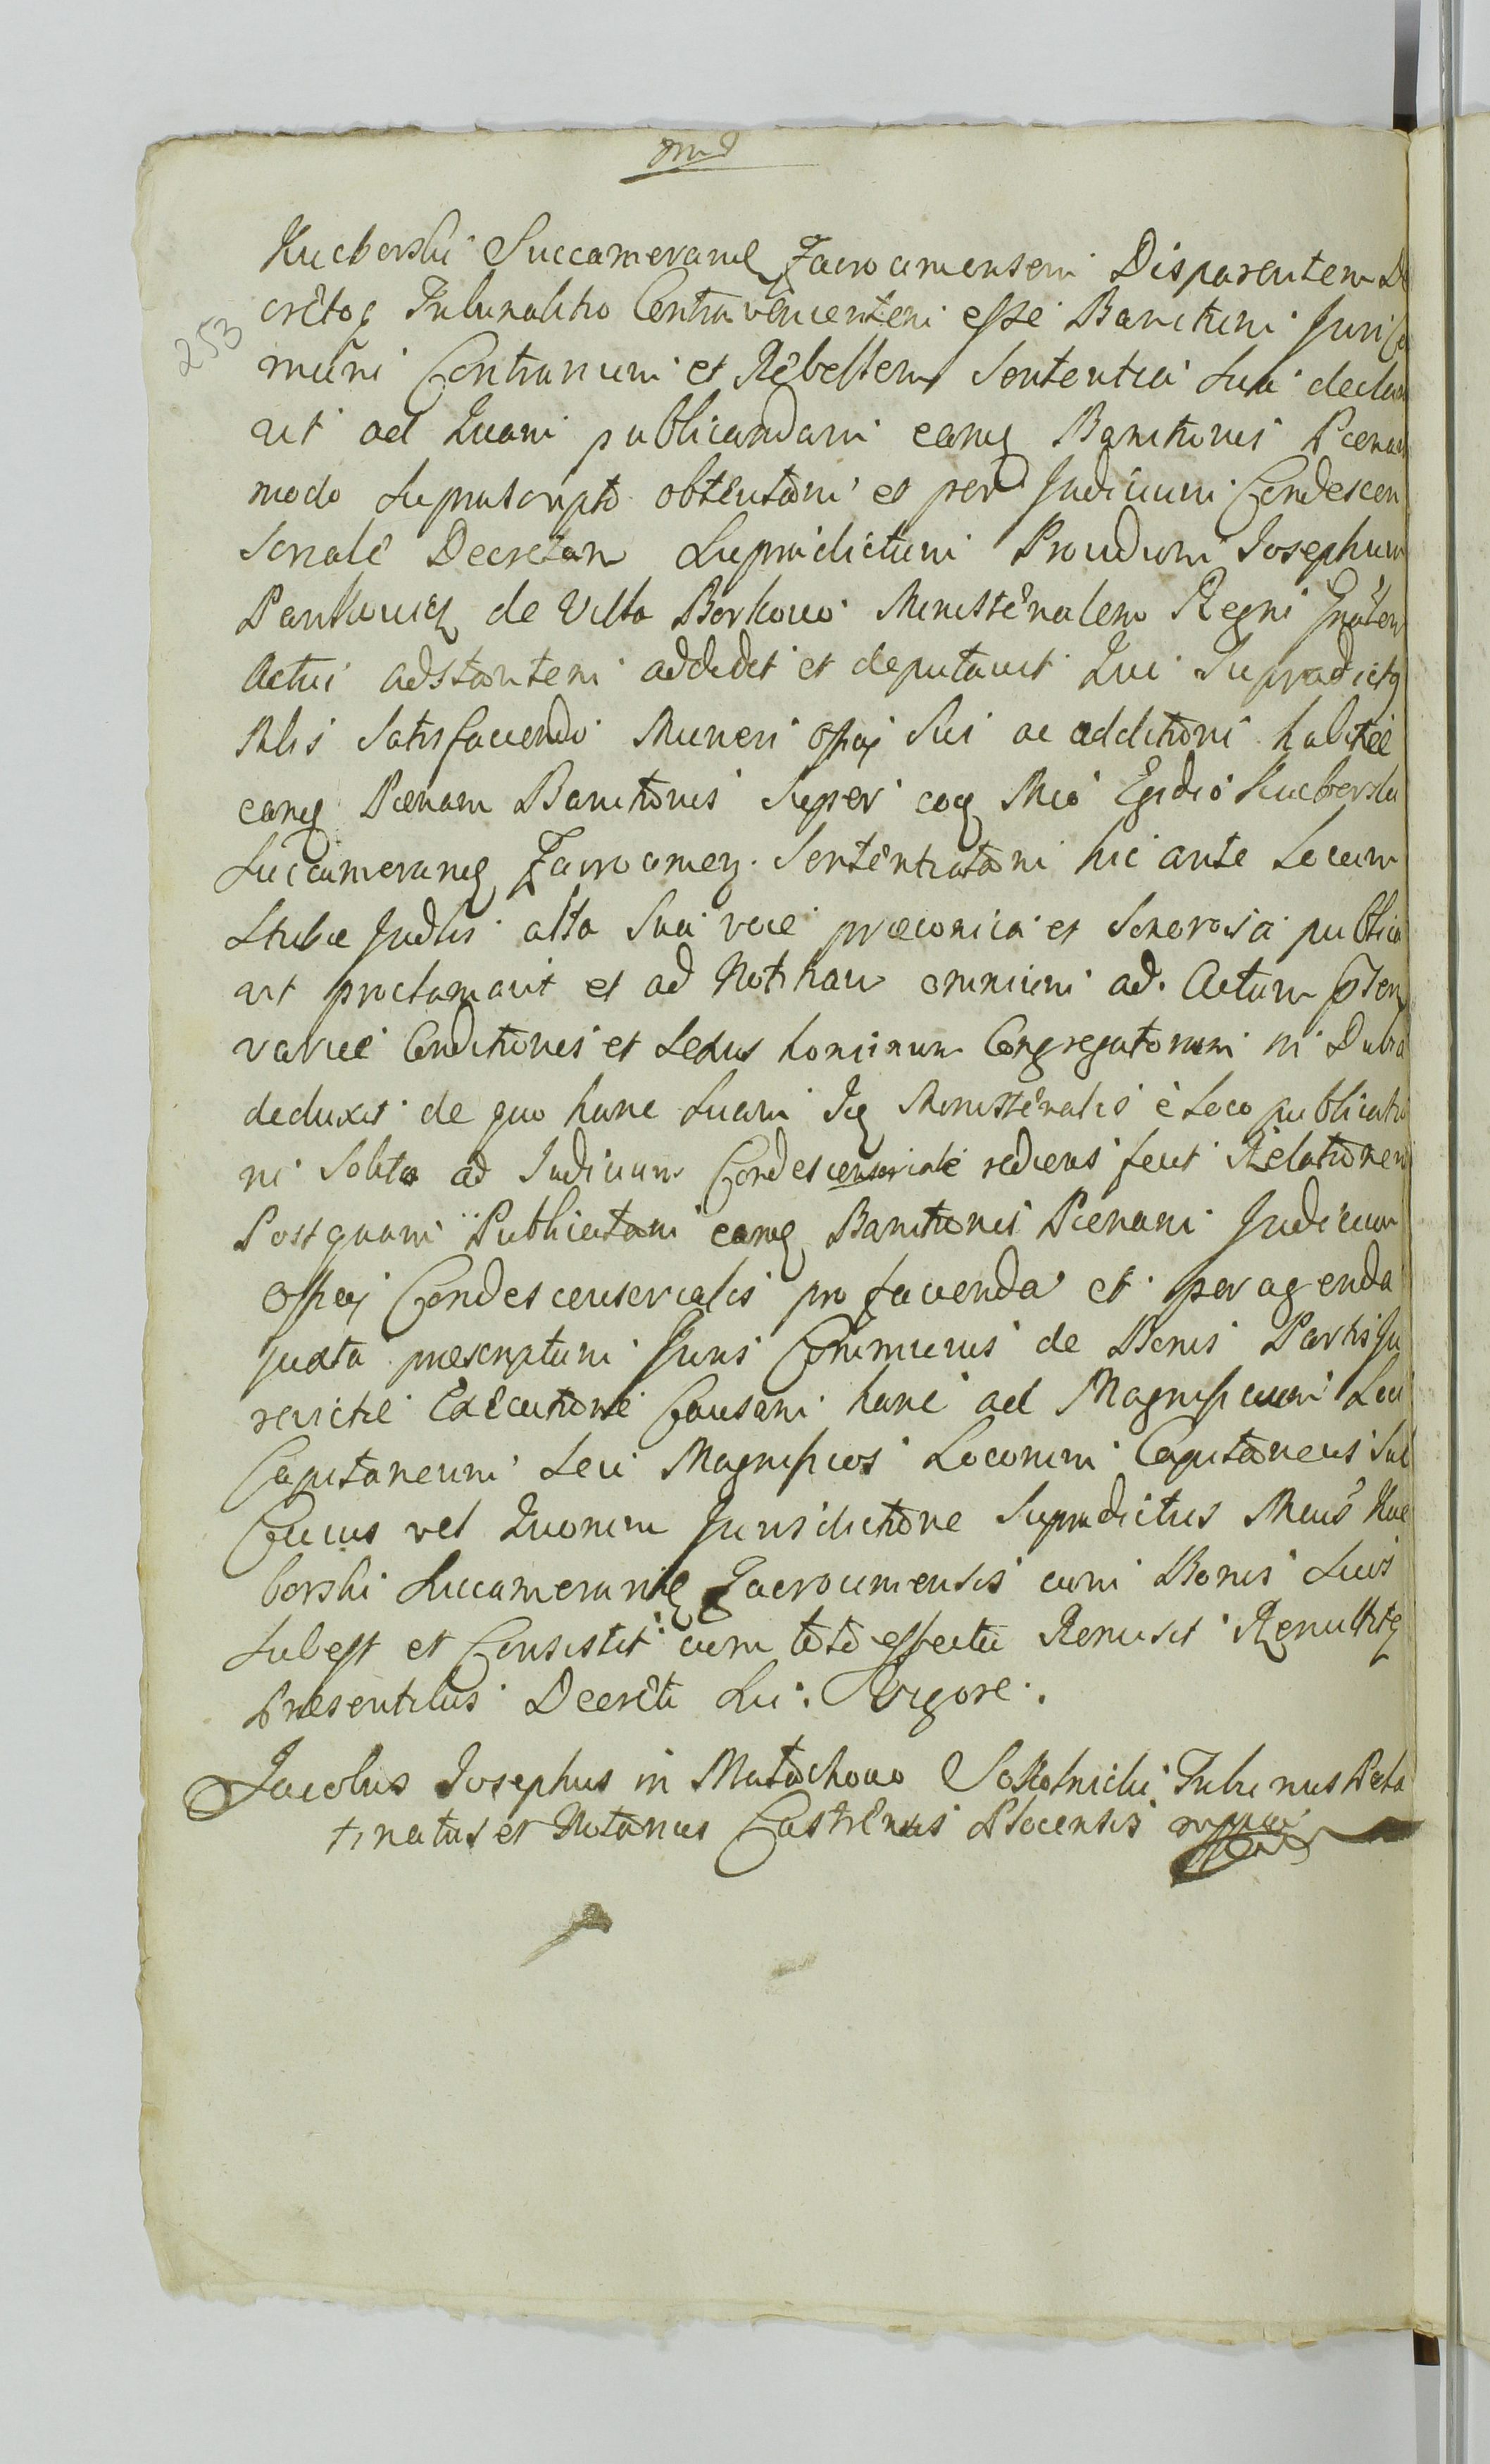 253
Kucborski Succameranum Zacrocimensem Disparentem De
cretoq Tribunalitio Contravenientem esse Banitum Juri Co
muni Contrarium et Rebellem Sententia Sua declar
avit ad Quam publicandam eamq Banitionis Pœnam
modo suprascripto obtentam et per Judicium Condescen
soriale Decretam Supradictum Providum Josephum
Pankowicz de Villa Borkowo Ministerialem Regni Gnalem
Actui adstantem addidit et deputavit Qui Supradictq
Mlis Satisfaciendo Muneri Offai Sui ac additioni habitæ
eamq Pœnam Banitionis Super eoq Mco Egidio Kucborski
Succamerarioq Zacrocimen. Sententiatam hic ante Locum
Stubæ Judlis alta Sua voce præconica et Sonorosa publica
vit proclamavit et ad Notitiam omnium ad Actum pnten
variæ Conditionis et Sexus hominum Congregatorum ni Dubia
deduxit de quo hanc Suam Iq Ministerialis è Loco publicatio
ni Solito ad Judicium Condescensoriale rediens fecit Relationem
Postquam Publicatam eamq Banitionis Pœnam Judicium
Offai Condescensorialis pro facienda et peragenda
juxta præscriptum Juris Communis de Bonis Partis Ju
revictæ Executione Causam hanc ad Magnificum Loci
Capitaneum Seu Magnificos Locorum Capitaneos Sub
Cuius vel Quorum Jurisdictione Supradictus Mcus Kuc
borski Succamerariq Zacrocimensis cum Bonis Suis
Subest et Consistit cum toto effectu Remisit Remittitq
Præsentibus Decreti Sui Vigore.
Jacobus Josephus in Matachowo Sokolnicki Tribunus Pala
tinatus et Notarius Castrensis Plocensis mppa